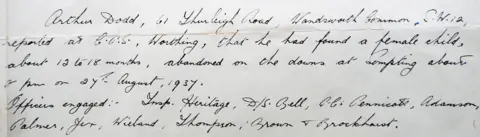 Arthur Dodd, 61 Thurleigh Road, Wandsworth Common, S.W.12,
reported at C.O.S, Worthing, that he had found a female child,
about 12 to 18 months, abandoned on the downs at Sompting about
2 pm on 27th August, 1937.
Officers engaged:- Insp. Heritage, D/S. Bell, P.Cs. Pennicott, Adamson,
Palmer, Wieland, Thompson, Brown & Brockhurst.